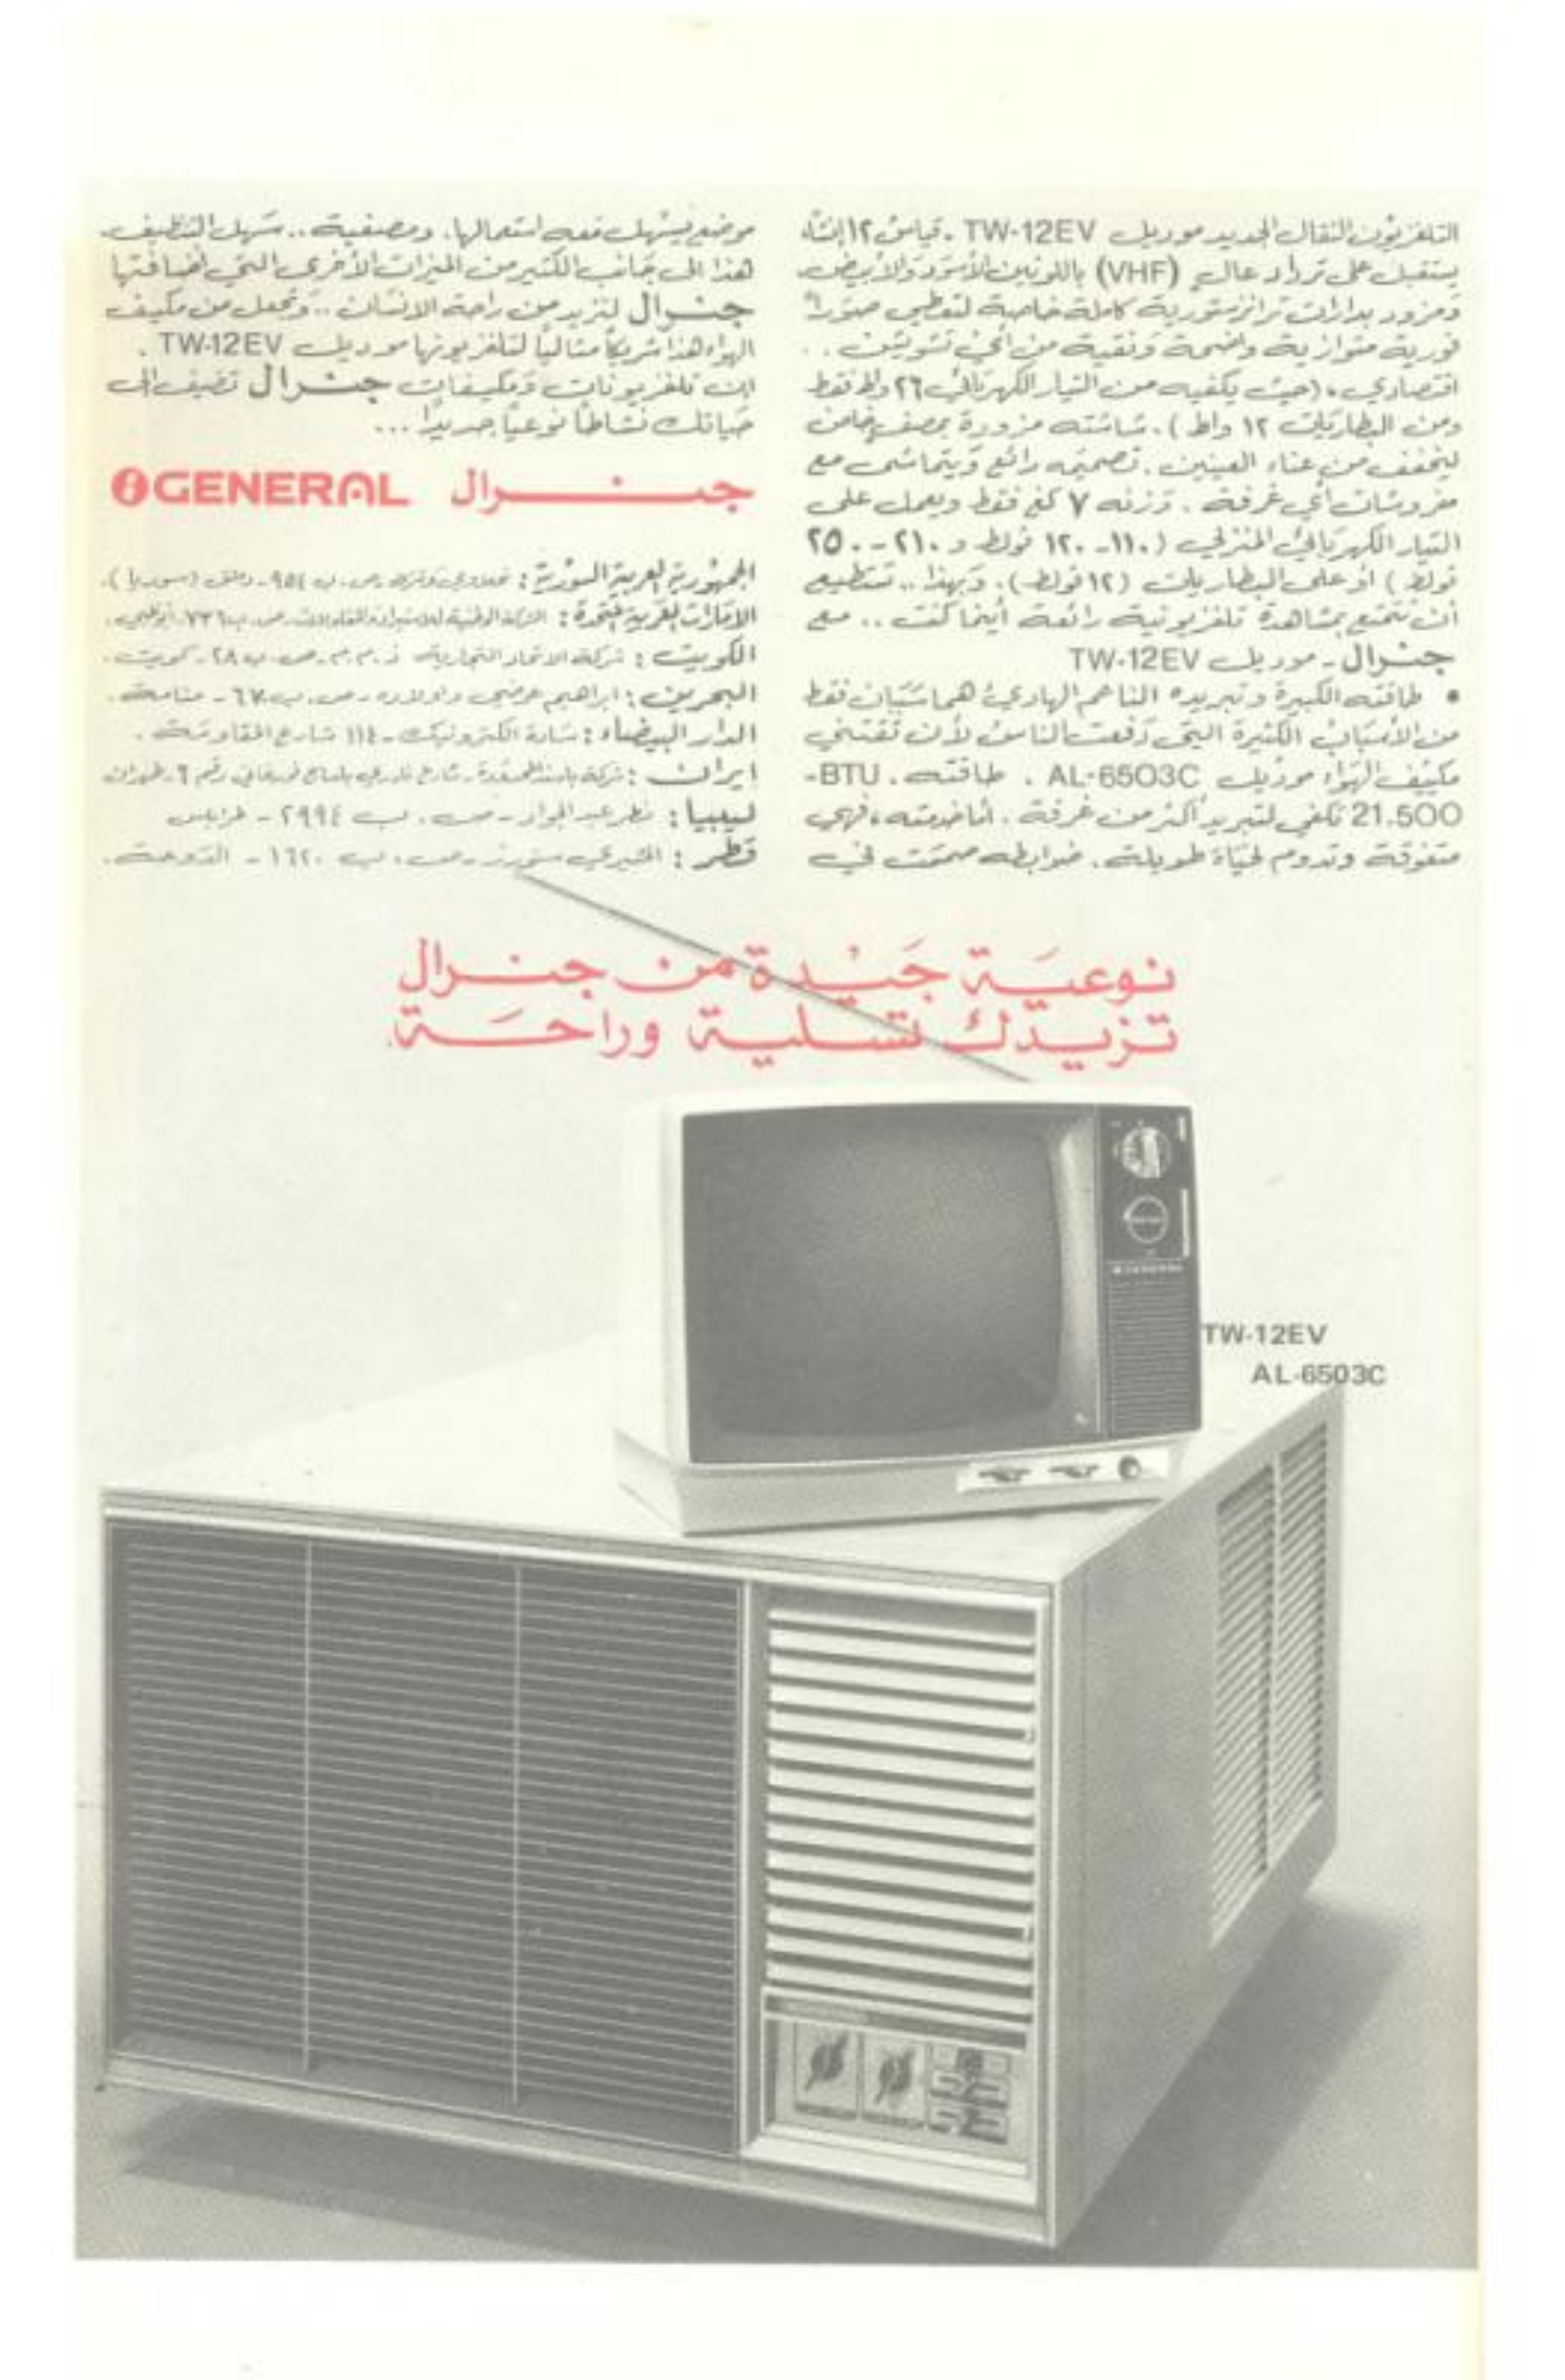 التلفزيون النقال الجديد موديل TW-12EV - قياس ١٢ إنشاً
يستقبل على ترداد عالٍ (VHF) باللونين الأسود والأبيض
ومزود بدارات ترانزستورية كاملة خاصة لتعطي صوراً
فورية متوازية واضحة ونقية من أي تشويش ..
اقتصادي، (حيث يكفيه من التيار الكهربائي ٢٦ واط فقط
ومن البطاريات ١٢ واط). شاشته مزودة بمصف خاص
ليخفف من عناء العينين. تصميمه رائع ويتماشى مع
مفروشات أي غرفة. وزنه ٧ كغ فقط ويعمل على
التيار الكهربائي المنزلي (١١٠-١٢٠ فولط و ٢١٠-٢٥٠
فولط) أو على البطاريات (١٢ فولط). وبهذا.. تستطيع
أن تتمتع بمشاهدة تلفزيونية رائعة أينما كنت .. مع
جنرال - موديل TW-12EV
• طاقته الكبيرة وتبريده الناعم الهادئ هما سببان فقط
من الأسباب الكثيرة التي دفعت الناس لأن تقتني
مكيف الهواء موديل AL-6503C . طاقته، BTU-
21.500 تكفي لتبريد أكثر من غرفة. أما خدمته، فهي
متفوقة وتدوم لحياة طويلة. ضوابطه صممت في
موضع يسهل معه استعمالها. ومصفيه .. سهل التنظيف.
هذا الى جانب الكثير من الميزات الأخرى التي أضافتها
جنرال لتزيد من راحة الانسان .. وتجعل من مكيف
الهواء هذا شريكاً مثالياً لتلفزيونها موديل TW-12EV .
ان تلفزيونات ومكيفات جنرال تضيف الى
حياتك نشاطاً نوعياً جديداً ...
جنرال GENERAL
الجمهورية العربية السورية: ص.ب ٩٥٤ - دمشق (سوريا).
الامارات العربية المتحدة: الشركة الوطنية للاستيراد والمقاولات - ص.ب ٧٣٦ - أبوظبي.
الكويت: شركة الاتحاد التجارية ذ.م.م. - ص.ب ٢٨ - كويت.
البحرين: ابراهيم عوضي واولاده - ص.ب ٦٧ - منامة.
الدار البيضاء: سادة الكترونيك - ١١٤ شارع المقاومة.
ايران: شركة شارع نادري رقم ٦ - طهران
ليبيا: نظر عبد الجواد - ص.ب ٢٩٩٤ - طرابلس
قطر: ص.ب ١٦٢٠ - الدوحة.
نوعية جيدة من جنرال
تزيدك تسلية وراحة.
TW-12EV
AL-6503C
GENERAL